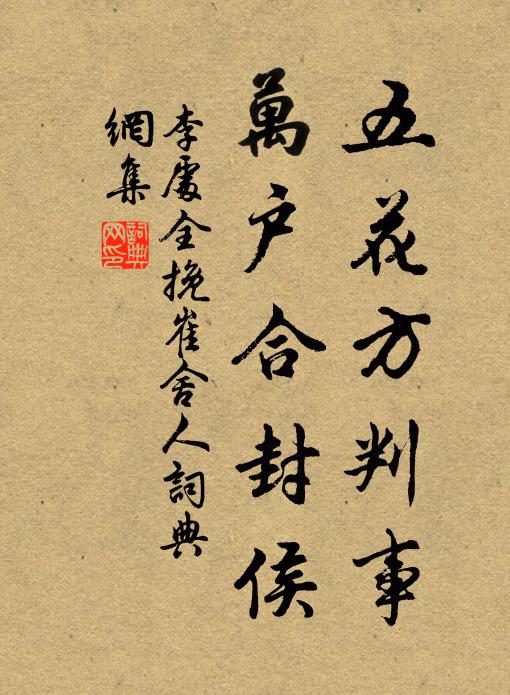 五花方判事
萬户合封侯
李處全挽崔舍人詞典
網集
詞典網印